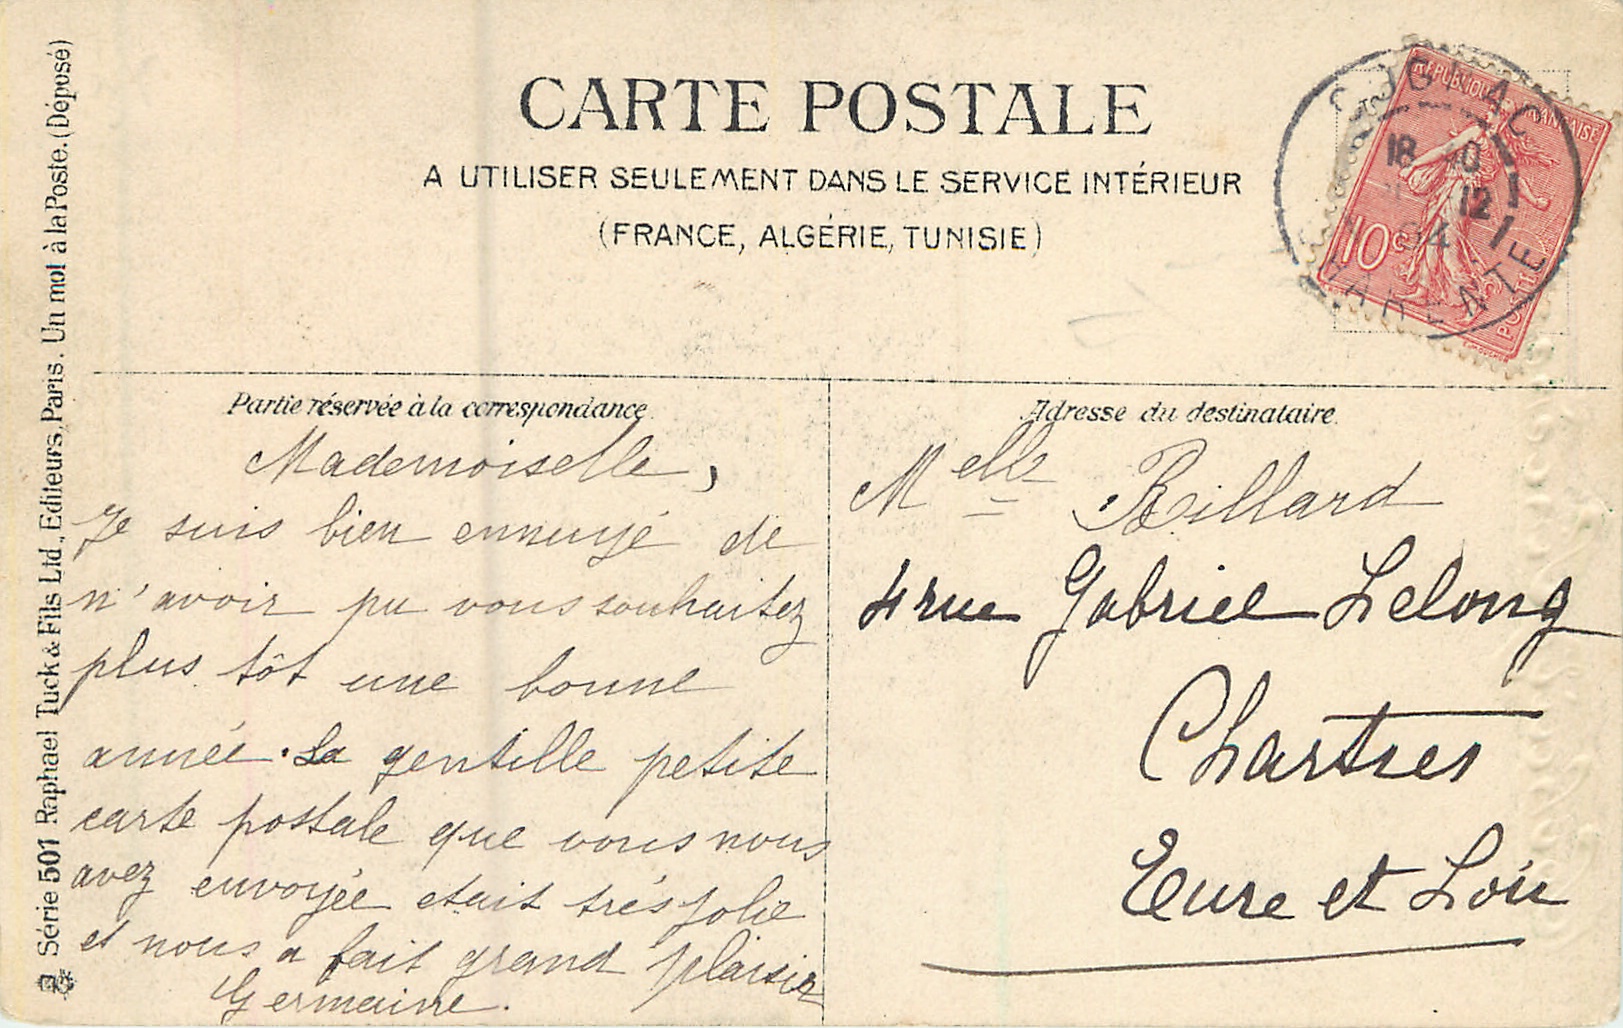 CARTE POSTALE
A UTILISER SEULEMENT DANS LE SERVICE INTÉRIEUR
(FRANCE, ALGÉRIE, TUNISIE)
RÉPUBLIQUE FRANÇAISE
10c
POSTES
18 10
12
04
CHARENTE
Série 501 Raphael Tuck & Fils Ltd., Editeurs, Paris. Un mot à la Poste. (Déposé)
Partie réservée à la correspondance
Mademoiselle,
Je suis bien ennuyé de
n'avoir pu vous souhaiter
plus tôt une bonne
année. La gentille petite
carte postale que vous nous
avez envoyée etait très jolie
et nous a fait grand plaisir
Germaine.
Adresse du destinataire.
Melle Billard
4 rue Gabriel Lelong
Chartres
Eure et Loir